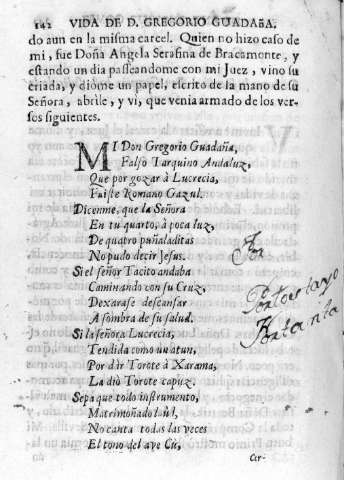 142 VIDA DE D. GREGORIO GUADAÑA.
do aun en la misma carcel. Quien no hizo caso de
mi, fue Doña Angela Serafina de Bracamonte, y
estando un dia passeandome con mi Juez, vino su
criada, y diòme un papel, escrito de la mano de su
Señora, abrile, y vi, que venia armado de los ver-
sos siguientes.
MI Don Gregorio Guadaña,
Falso Tarquino Andaluz,
Que por gozar à Lucrecia,
Fuiste Romano Gazul.
Dicenme, que la Señora
En tu quarto, à poca luz,
De quatro puñaladitas
No pudo decir Jesus.
Si el señor Tacito andaba
Caminando con su Cruz,
Dexarase descansar
A sombra de su salud.
Si la señora Lucrecia,
Tendida como un atun,
Por dir Torote à Xarama,
La diò Torote capuz.
Sepa que todo instrumento,
Matrimoñado
No canta todas las veces
El tono del ave Cù,
Cir-
Por